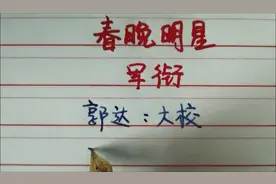 春晚明星
军衔
郭达：大校